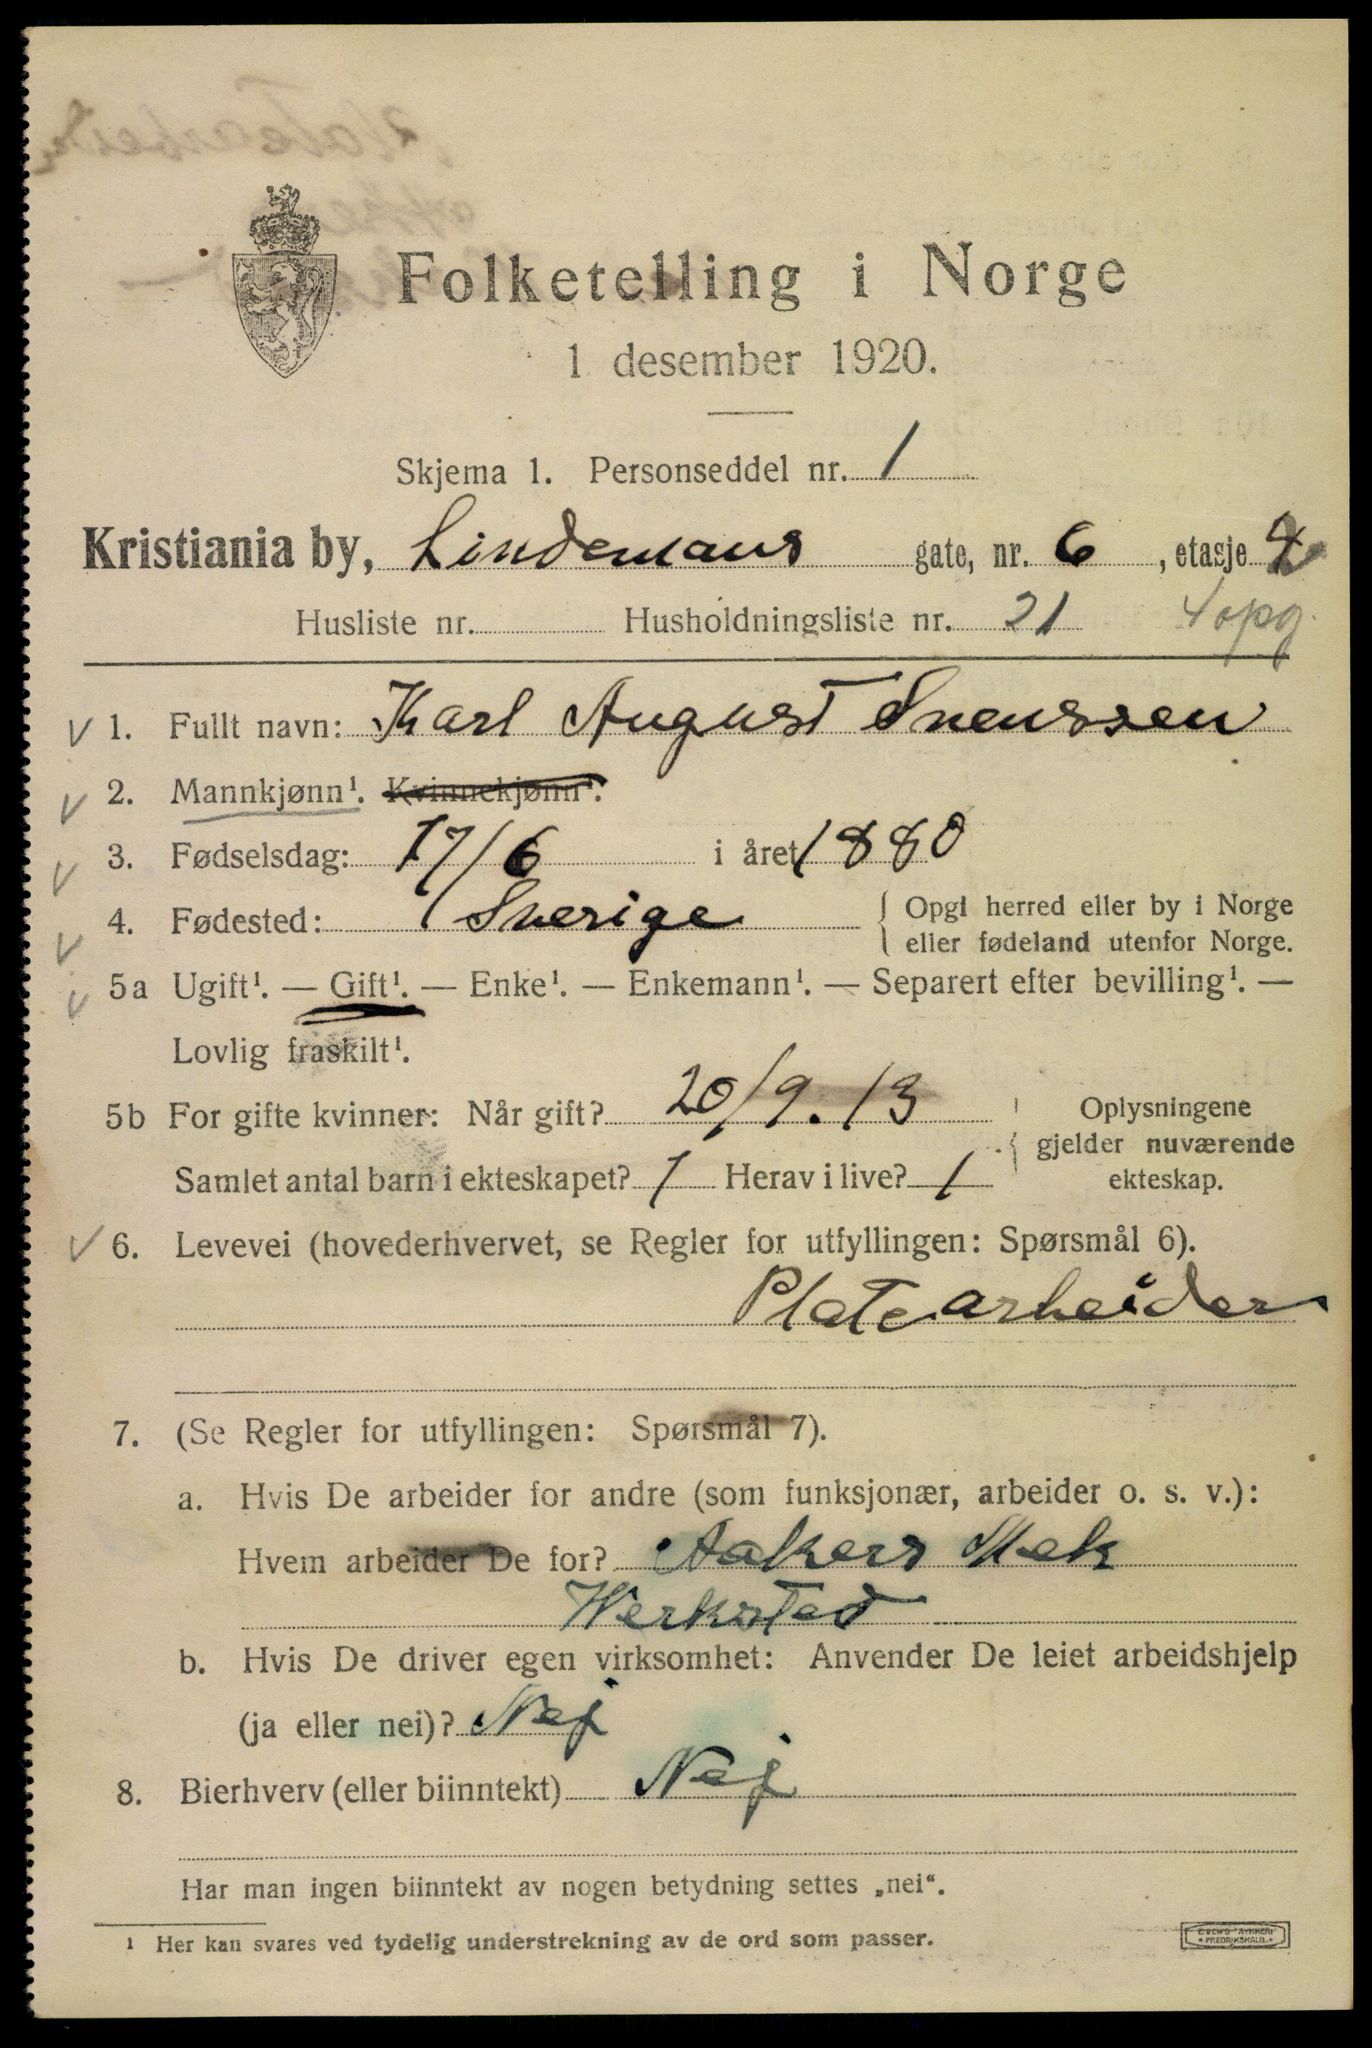 Folketelling i Norge
1 desember 1920.
Skjema 1. Personseddel nr. 1
Kristiania by, Lindemans gate, nr. 6, etasje 4
Husliste nr. Husholdningsliste nr. 21 4 opg.
1. Fullt navn: Karl August Svenssen
2. Mannkjønn¹. Kvinnekjønn¹.
3. Fødselsdag: 17/6 i året 1880
4. Fødested: Sverige { Opgi herred eller by i Norge
eller fødeland utenfor Norge.
5a Ugift¹. — Gift¹. — Enke¹. — Enkemann¹. — Separert efter bevilling¹. —
Lovlig fraskilt¹.
5b For gifte kvinner: Når gift? 20/9. 13 Oplysningene
gjelder nuværende
Samlet antal barn i ekteskapet? 1 Herav i live? 1 ekteskap.
6. Levevei (hovederhvervet, se Regler for utfyllingen: Spørsmål 6).
Platearbeider
7. (Se Regler for utfyllingen: Spørsmål 7).
a. Hvis De arbeider for andre (som funksjonær, arbeider o. s. v.):
Hvem arbeider De for? Aakers Mek
Werksted
b. Hvis De driver egen virksomhet: Anvender De leiet arbeidshjelp
(ja eller nei)? Nej
8. Bierhverv (eller biinntekt) Nej
Har man ingen biinntekt av nogen betydning settes „nei“.
¹ Her kan svares ved tydelig understrekning av de ord som passer.
FREDRIKSHALD